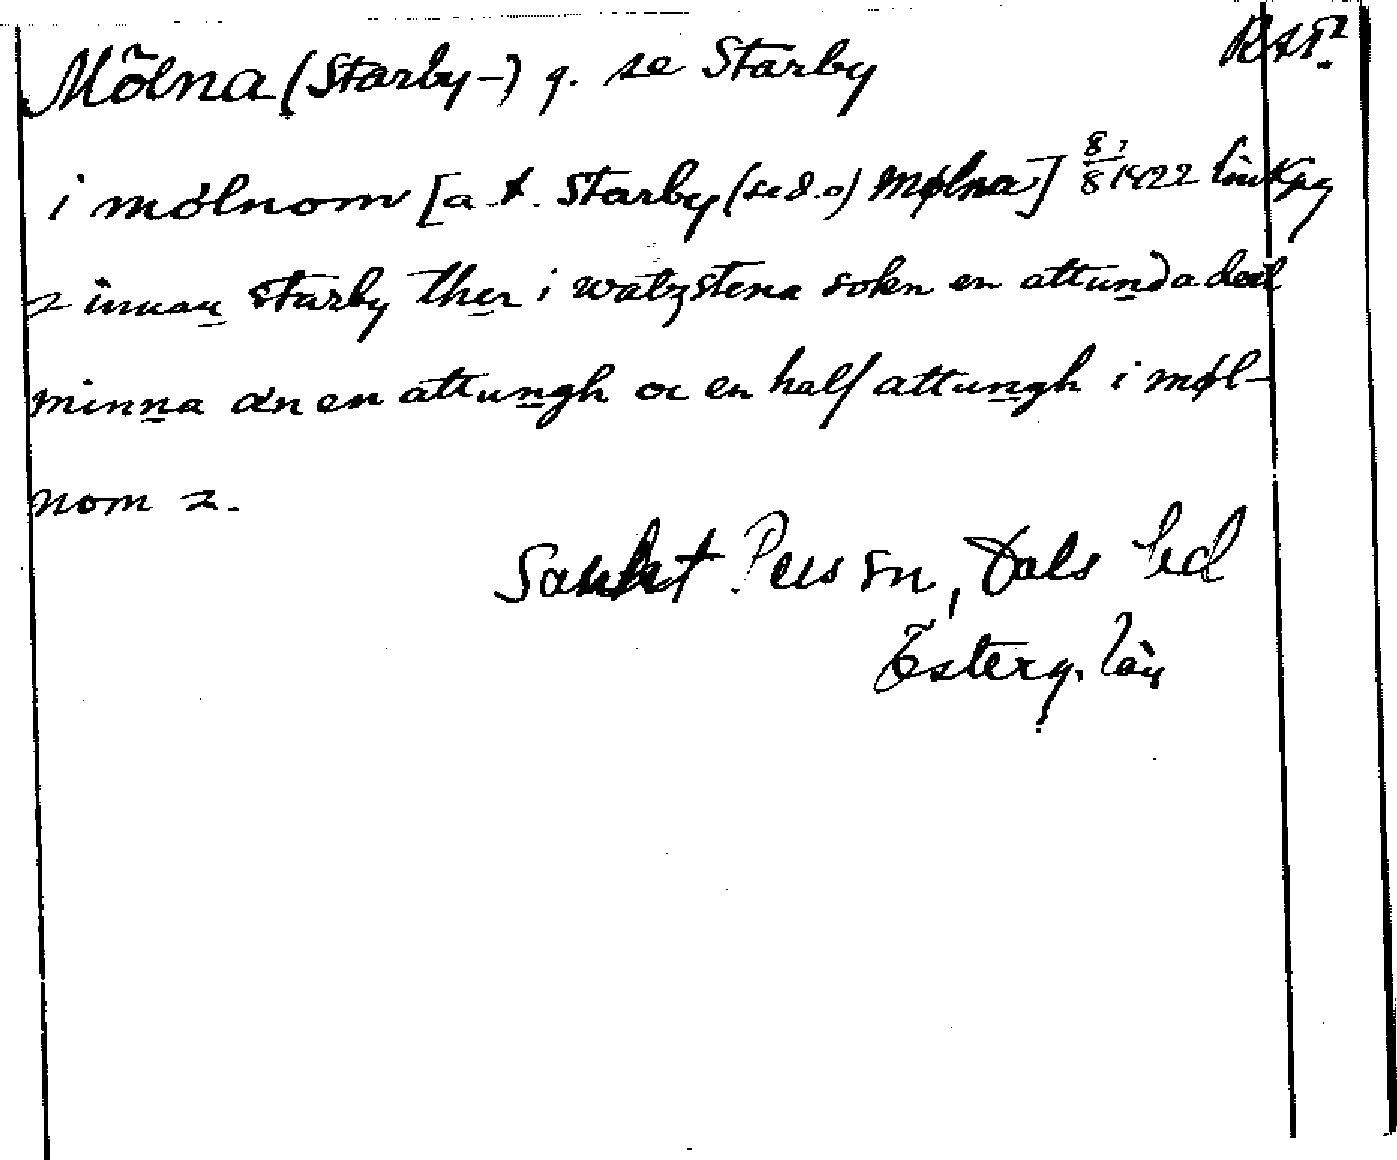 Mölna (Starby-) g. se Starby
i mólnom [a t. Starby (se d. o) Mølna] 8/8 1422 Linkpg
innan starby ther i watzstena sokn en attundadeel
minna än en attungh oc en half attungh i møl-
nom
Sankt Pers sn, Dals hd
Österg. län